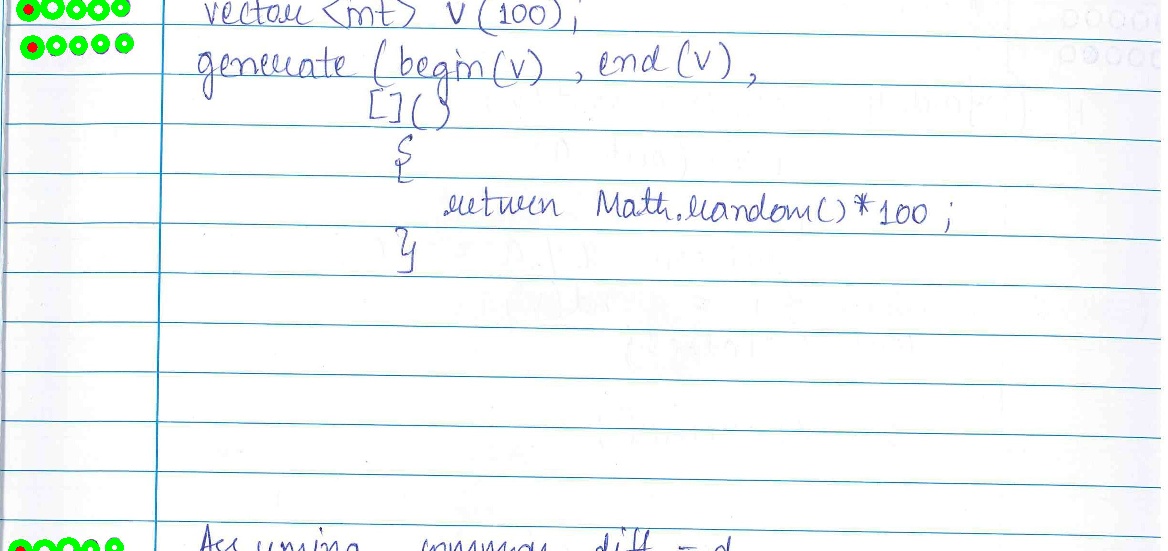 vector <int> v(100);
generate (begin(v) , end (v) ,
[]()
{
return Math.random() * 100 ;
}
Assuming common diff = d